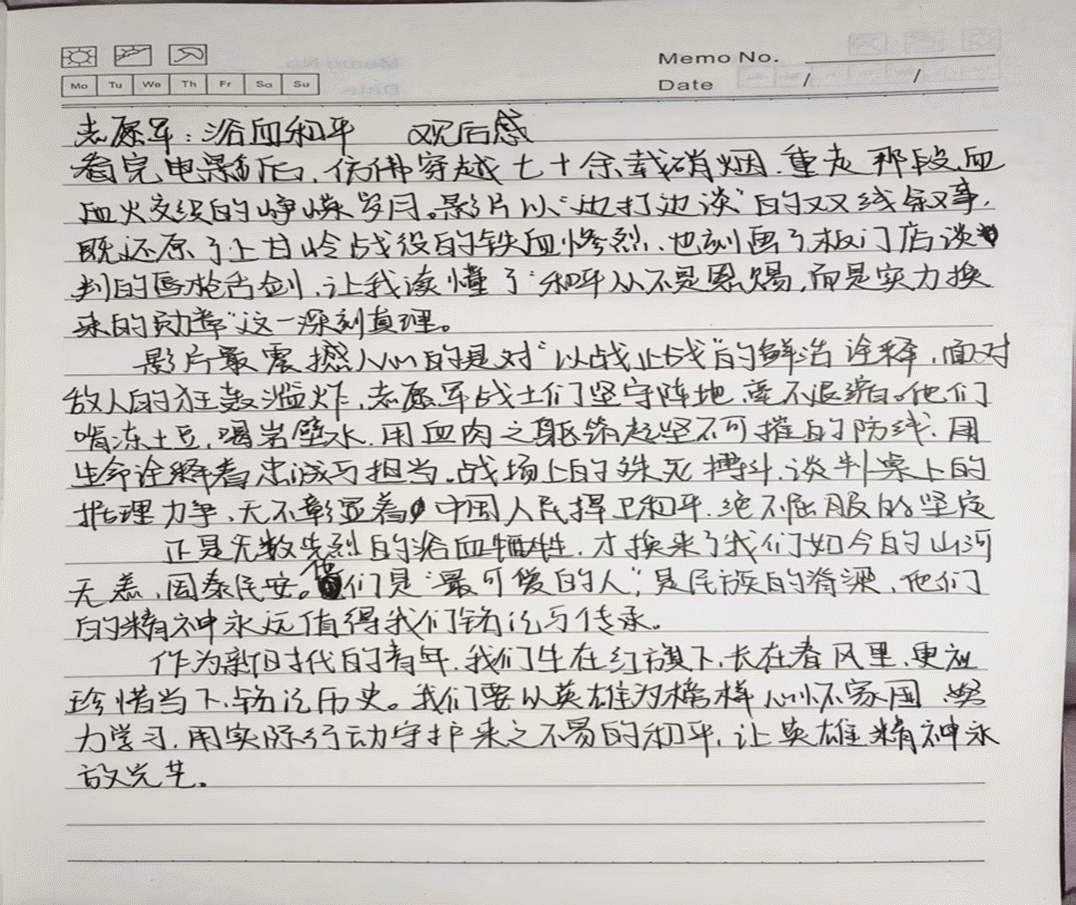 Memo No.
Mo Tu We Th Fr Sa Su
Date / /
志愿军：浴血和平 观后感
看完电影后，仿佛穿越七十余载硝烟，重走那段血
血火交织的峥嵘岁月。影片以“边打边谈”的双线叙事，
既还原了上甘岭战役的铁血惨烈、也刻画了板门店谈
判的唇枪舌剑，让我读懂了“和平从不是恩赐，而是实力换
来的勋章”这一深刻真理。
影片最震撼人心的是对“以战止战”的鲜活诠释，面对
敌人的狂轰滥炸，志愿军战士们坚守阵地，毫不退缩。他们
啃冻土豆，喝岩壁水，用血肉之躯筑起坚不可摧的防线、用
生命诠释着忠诚与担当。战场上的殊死搏斗、谈判桌上的
据理力争、无不彰显着中国人民捍卫和平，绝不屈服的坚定
正是无数先烈的浴血牺牲，才换来了我们如今的山河
无恙，国泰民安。他们是“最可爱的人”，是民族的脊梁，他们
的精神永远值得我们铭记与传承。
作为新时代的青年，我们生在红旗下，长在春风里，更应
珍惜当下、铭记历史。我们要以英雄为榜样心怀家国，努
力学习，用实际行动守护来之不易的和平，让英雄精神永
放光芒。